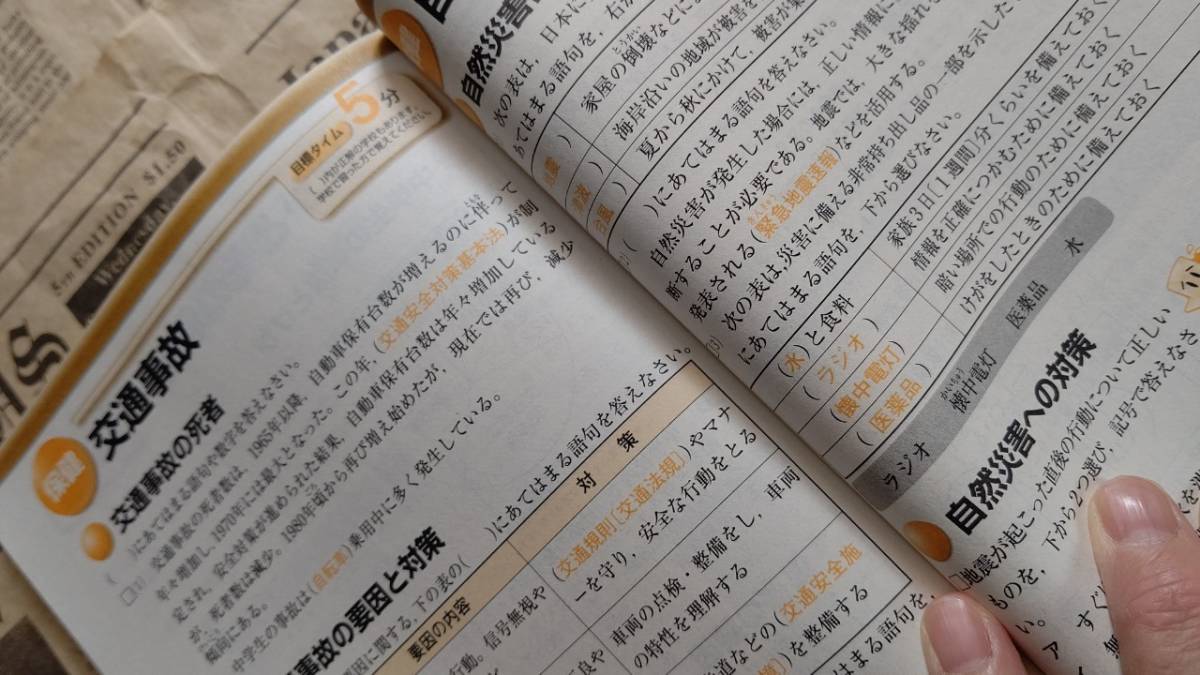 5TH EDITION $1.50
Wednesday
目標タイム 5分
学校で習った方で覚えてください。
保健
交通事故
交通事故の死者
( )にあてはまる語句や数字を答えなさい。
交通事故の死者数は、1965年以降、自動車保有台数が増えるのに伴って
年々増加し、1970年には最大となった。この年、(交通安全対策基本法)が制
定され、安全対策が進められた結果、自動車保有台数は年々増加している
が、死者数は減少。1980年頃から再び増え始めたが、現在では再び、減少
傾向にある。
中学生の事故は(自転車)乗用中に多く発生している。
事故の要因と対策
因に関する、下の表の( )にあてはまる語句を答えなさい。
要因の内容
対 策
行動。信号無視や
(交通規則〔交通法規〕)やマナ
ーを守り、安全な行動をとる
良や
車両の点検・整備をし、車両
の特性を理解する
道などの(交通安全施
)を整備する
はまる語句を、
自然災害
次の表は、日本に
てはまる語句を、右か
家屋の倒壊などに
海岸沿いの地域が被害を
(台風)
夏から秋にかけて、被害が
( )にあてはまる語句を答えなさい。
自然災害が発生した場合には、正しい情報に
断することが必要である。地震では、大きな揺れ
発表される(緊急地震速報)などを活用する。
次の表は、災害に備える非常持ち出し品の一部を示した
にあてはまる語句を、下から選びなさい。
(水)と食料
家族3日〔1週間〕分くらいを備えておく
(ラジオ)
情報を正確につかむために備えておく
(懐中電灯)
暗い場所での行動のために備えて
(医薬品)
けがをしたときのために備えておく
ラジオ 懐中電灯 医薬品 水
かいちゅう
自然災害への対策
地震が起こった直後の行動について正しい
ものを、下から2つ選び、記号で答えなさ
い。
ア すぐ